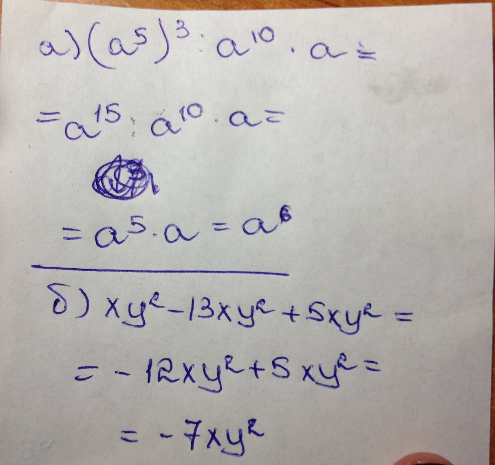 а) (a⁵)³ : a¹⁰ · a =
= a¹⁵ : a¹⁰ · a =
= a⁵ · a = a⁶
б) xy² - 13xy² + 5xy² =
= - 12xy² + 5xy² =
= - 7xy²